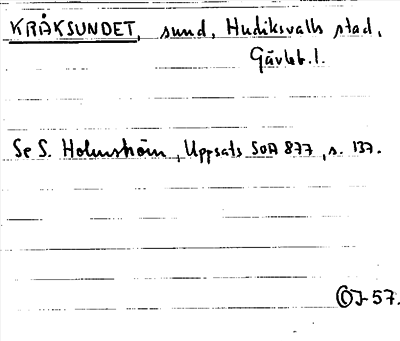 KRÅKSUNDET, sund, Hudiksvalls stad,
Gävleb. l.
Se S. Holmström, Uppsats SOA 877, s. 137.
OJ-57.